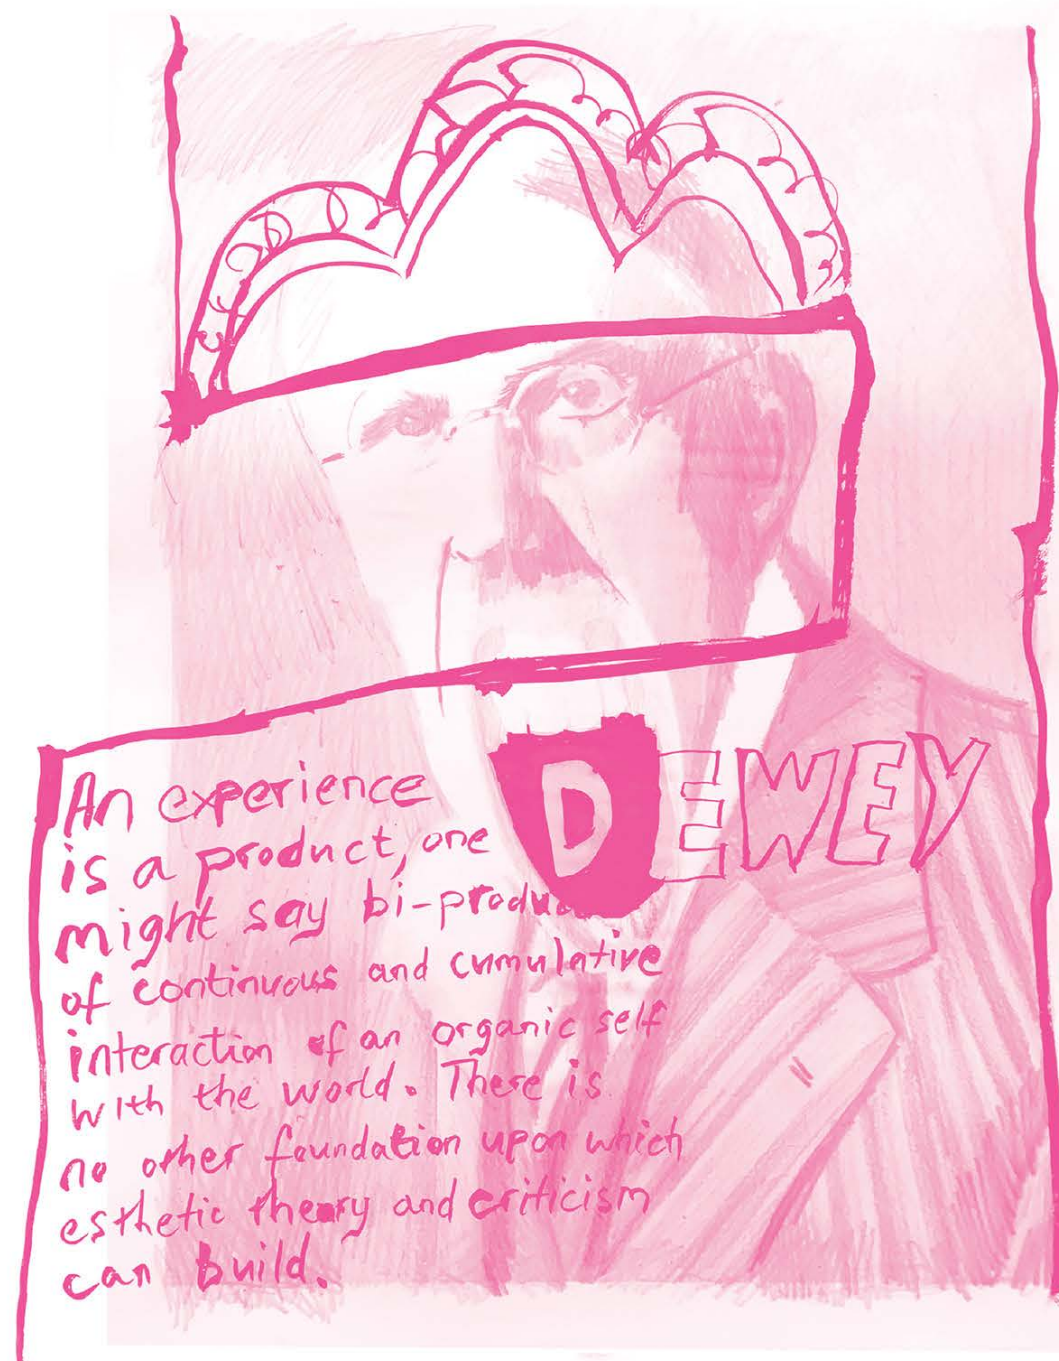 DEWEY
An experience
is a product, one
might say bi-produc
of continuous and cumulative
interaction of an organic self
with the world. There is
no other foundation upon which
esthetic theory and criticism
can build.